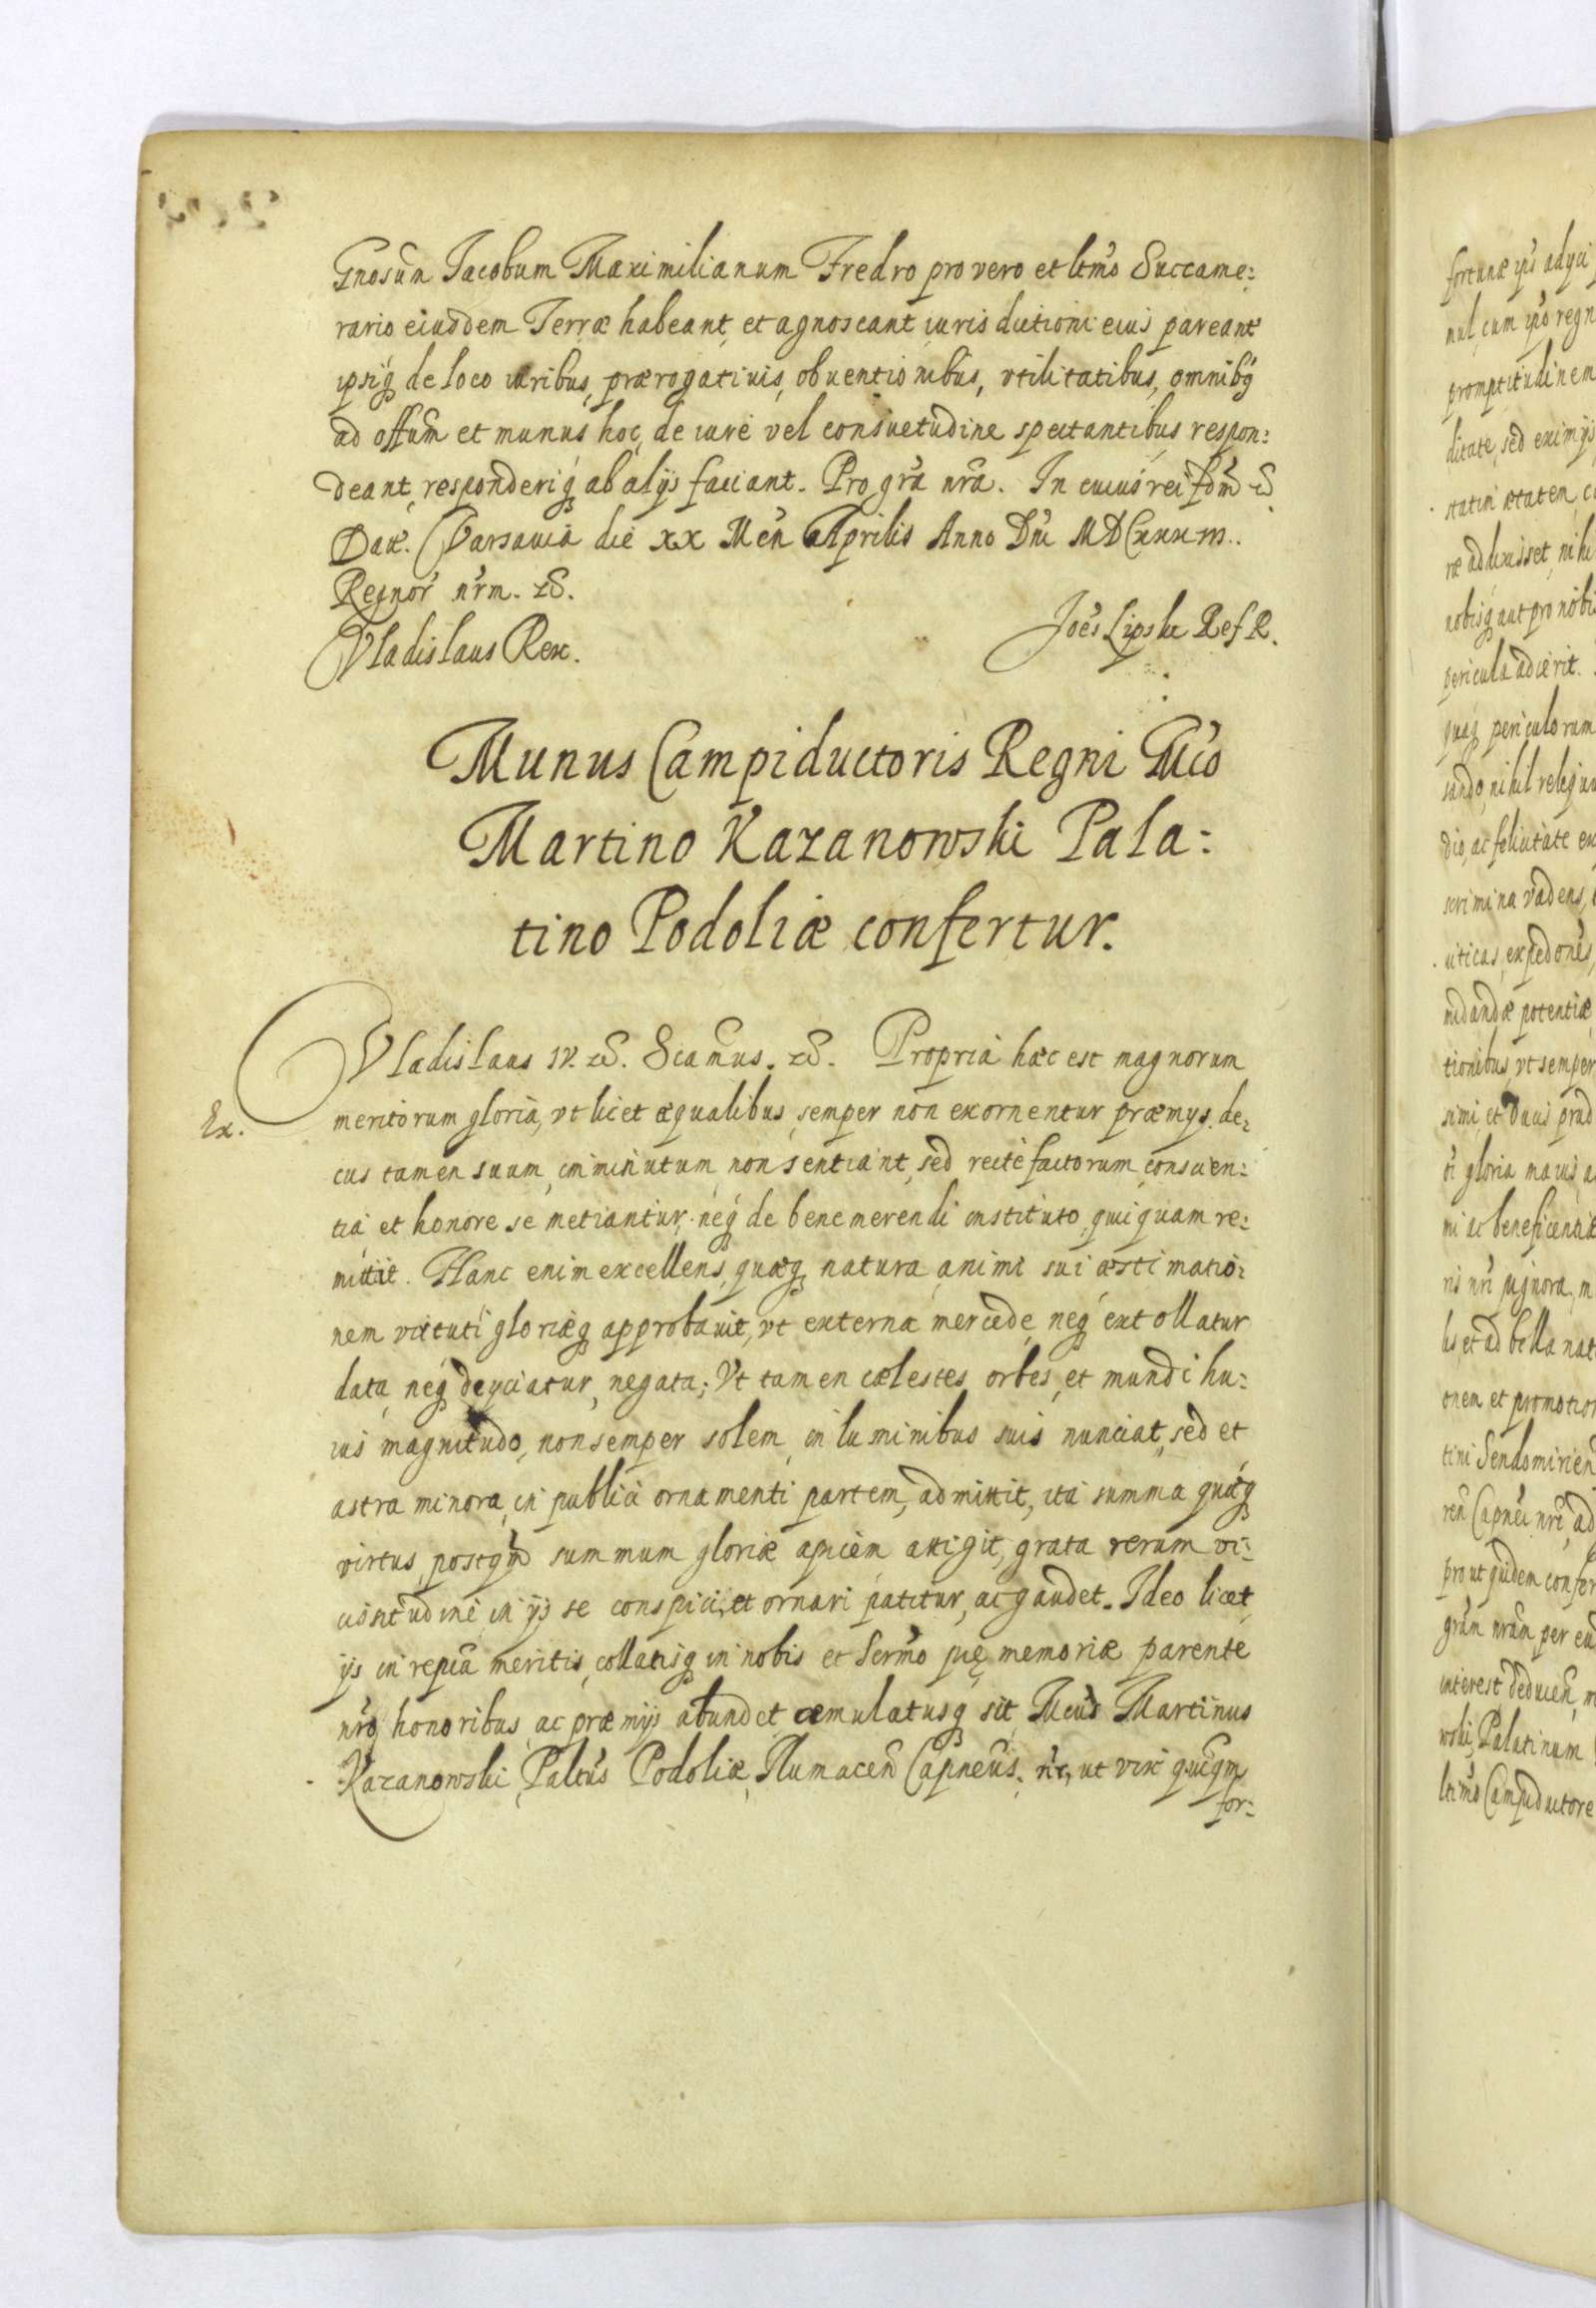 Gnosum Jacobum Maximilianum Fredro pro vero et ltmo Succame:
rario eiusdem Terræ habeant, et agnoscant iuris dictioni eius pareant
ipsiq́ de loco iuribus, prærogatiuis, obuentionibus, vtilitatibus, omnibq́
ad offum et munus hoc, de iure vel consuetudine spectantibus respon:
deant, responderiq́ ab alijs faciant. Pro gra nra. In cuius rei fdm
Dat. Varsauiæ die xx Men Aprilis Anno Dni MDCxxxm..
Regnor nrm.
Vladislaus Rex.
Joes Lipski Ref R.
Munus Campiductoris Regni Mco
Martino Kazanowski Pala:
tino Podoliæ confertur.
Vladislaus IV. Scamus. Propria hæc est magnorum
Ex.
meritorum gloria, vt licet æqualibus, semper non exornentur præmys, de:
cus tamen suum, imminutum non sentiant, sed recte factorum, conscien:
tia et honore se metiantur, neq́ de bene merendi instituto, quiquam re:
mittat. Hanc enim excellens, quæq́ natura, animi sui æstimatio:
nem virtuti gloriæq́ approbauit, vt externa mercede, neq́ extollatur
data, neq́ deyciatur, negata; Vt tamen cælestes orbes, et mundi hu:
ius magnitudo, non semper solem, in luminibus suis nunciat, sed et
astra minora, in publici ornamenti partem, admittit, ita summa quæq́
virtus, postqm summum gloriæ apicem attigit, grata rerum vi:
cissitudine, in ijs se conspici, et ornari patitur, ac gaudet. Ideo licet,
ijs in repca meritis, collatisq́ in nobis et Sermo pię memoriæ parente
nro honoribus, ac præmijs abundet, æmulatusq́ sit, Mcus Martinus
Kazanowski, Paltus Podoliæ, Tlumacen Capneus, ut vix qucqm
for:
fortunæ
cum ipo regn
promptitudinem
ditate, sed eximijs
statim ætatem, c
ræ aduxisset, nihi
nobisq́ aut pro nobis
pericula adierit.
periculorum
nihil reliqu
dio, ac felicitate ex
scrimina vadens,
uticas, expedones,
potentiæ
tionibus, vt semper
simi, et Ducis prud
ti gloria maius, a
mi ac beneficentiæ
ris nri pignora, m
lis, et ad bella nat
onem et promotion
tini Sendomirien
ren Capnei nri, ad
prout quidem confer
gram nram per eu
interest deducen, m
wski, Palatinum
ltimo Campiductore